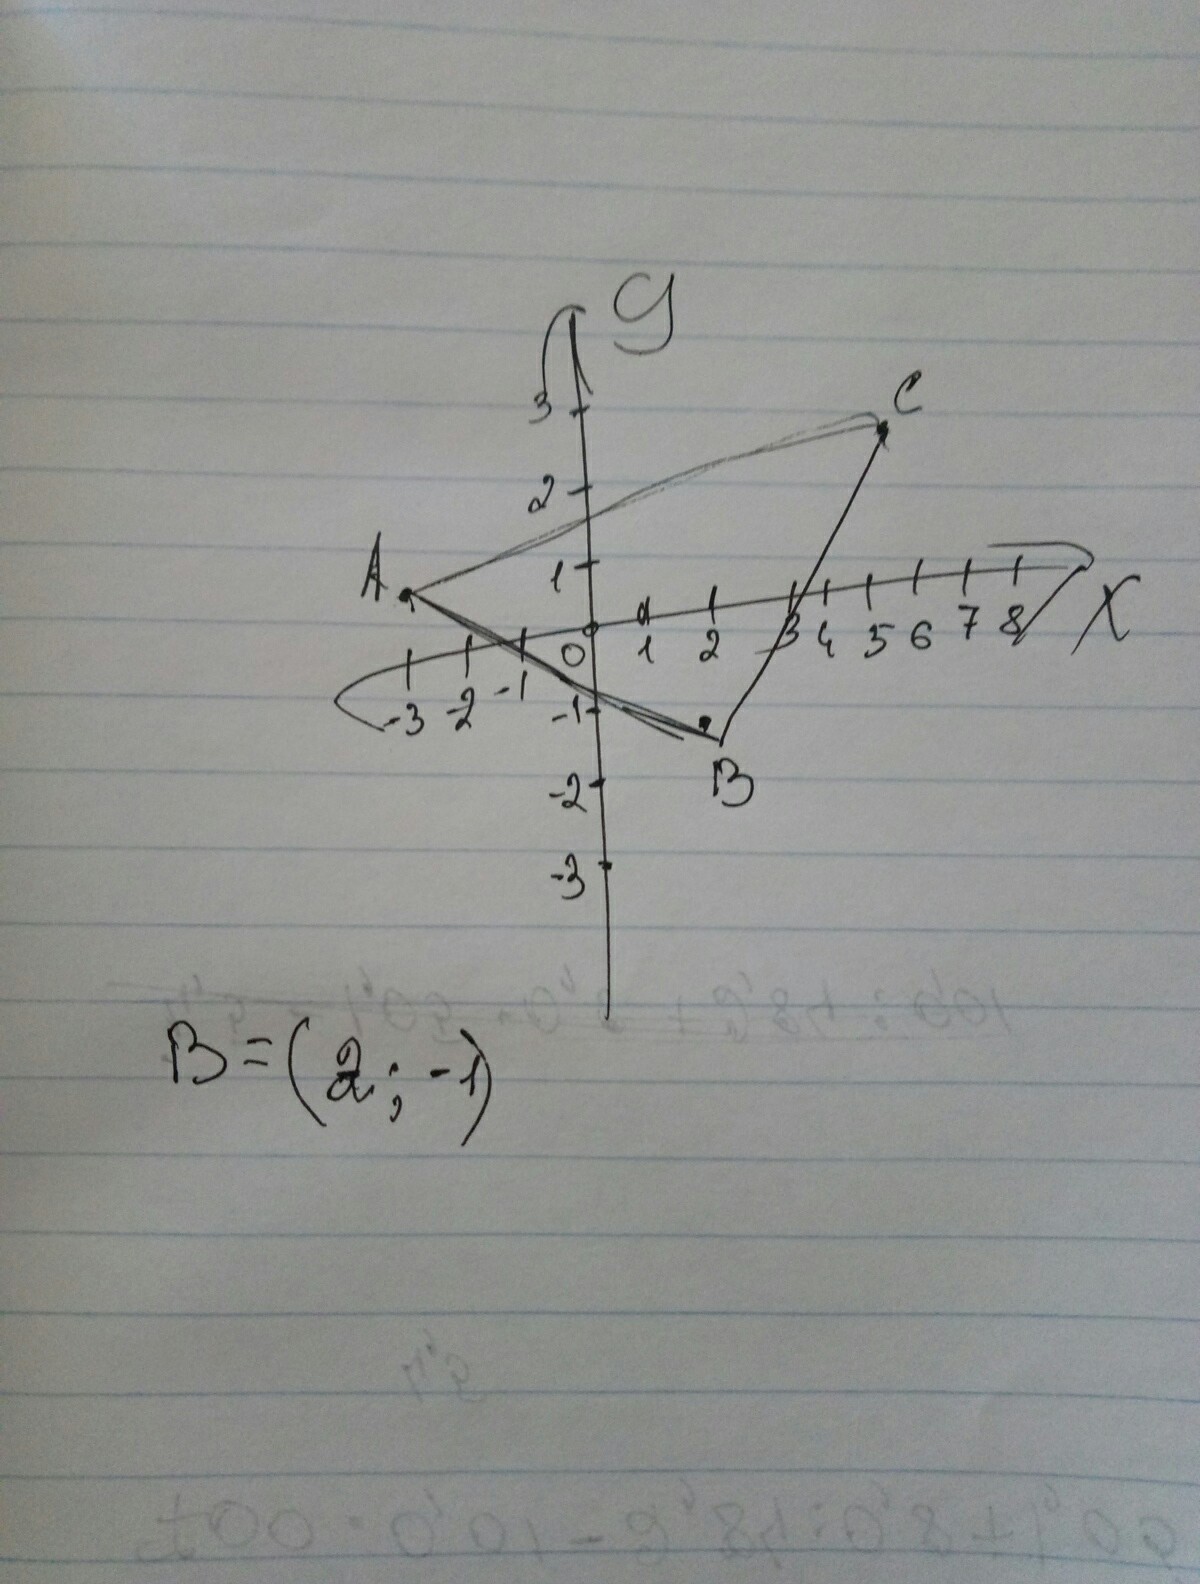 y
3
C
2
A
1
X
0 1 2 3 4 5 6 7 8
-3 -2 -1
-1
B
-2
-3
B=(2;-1)